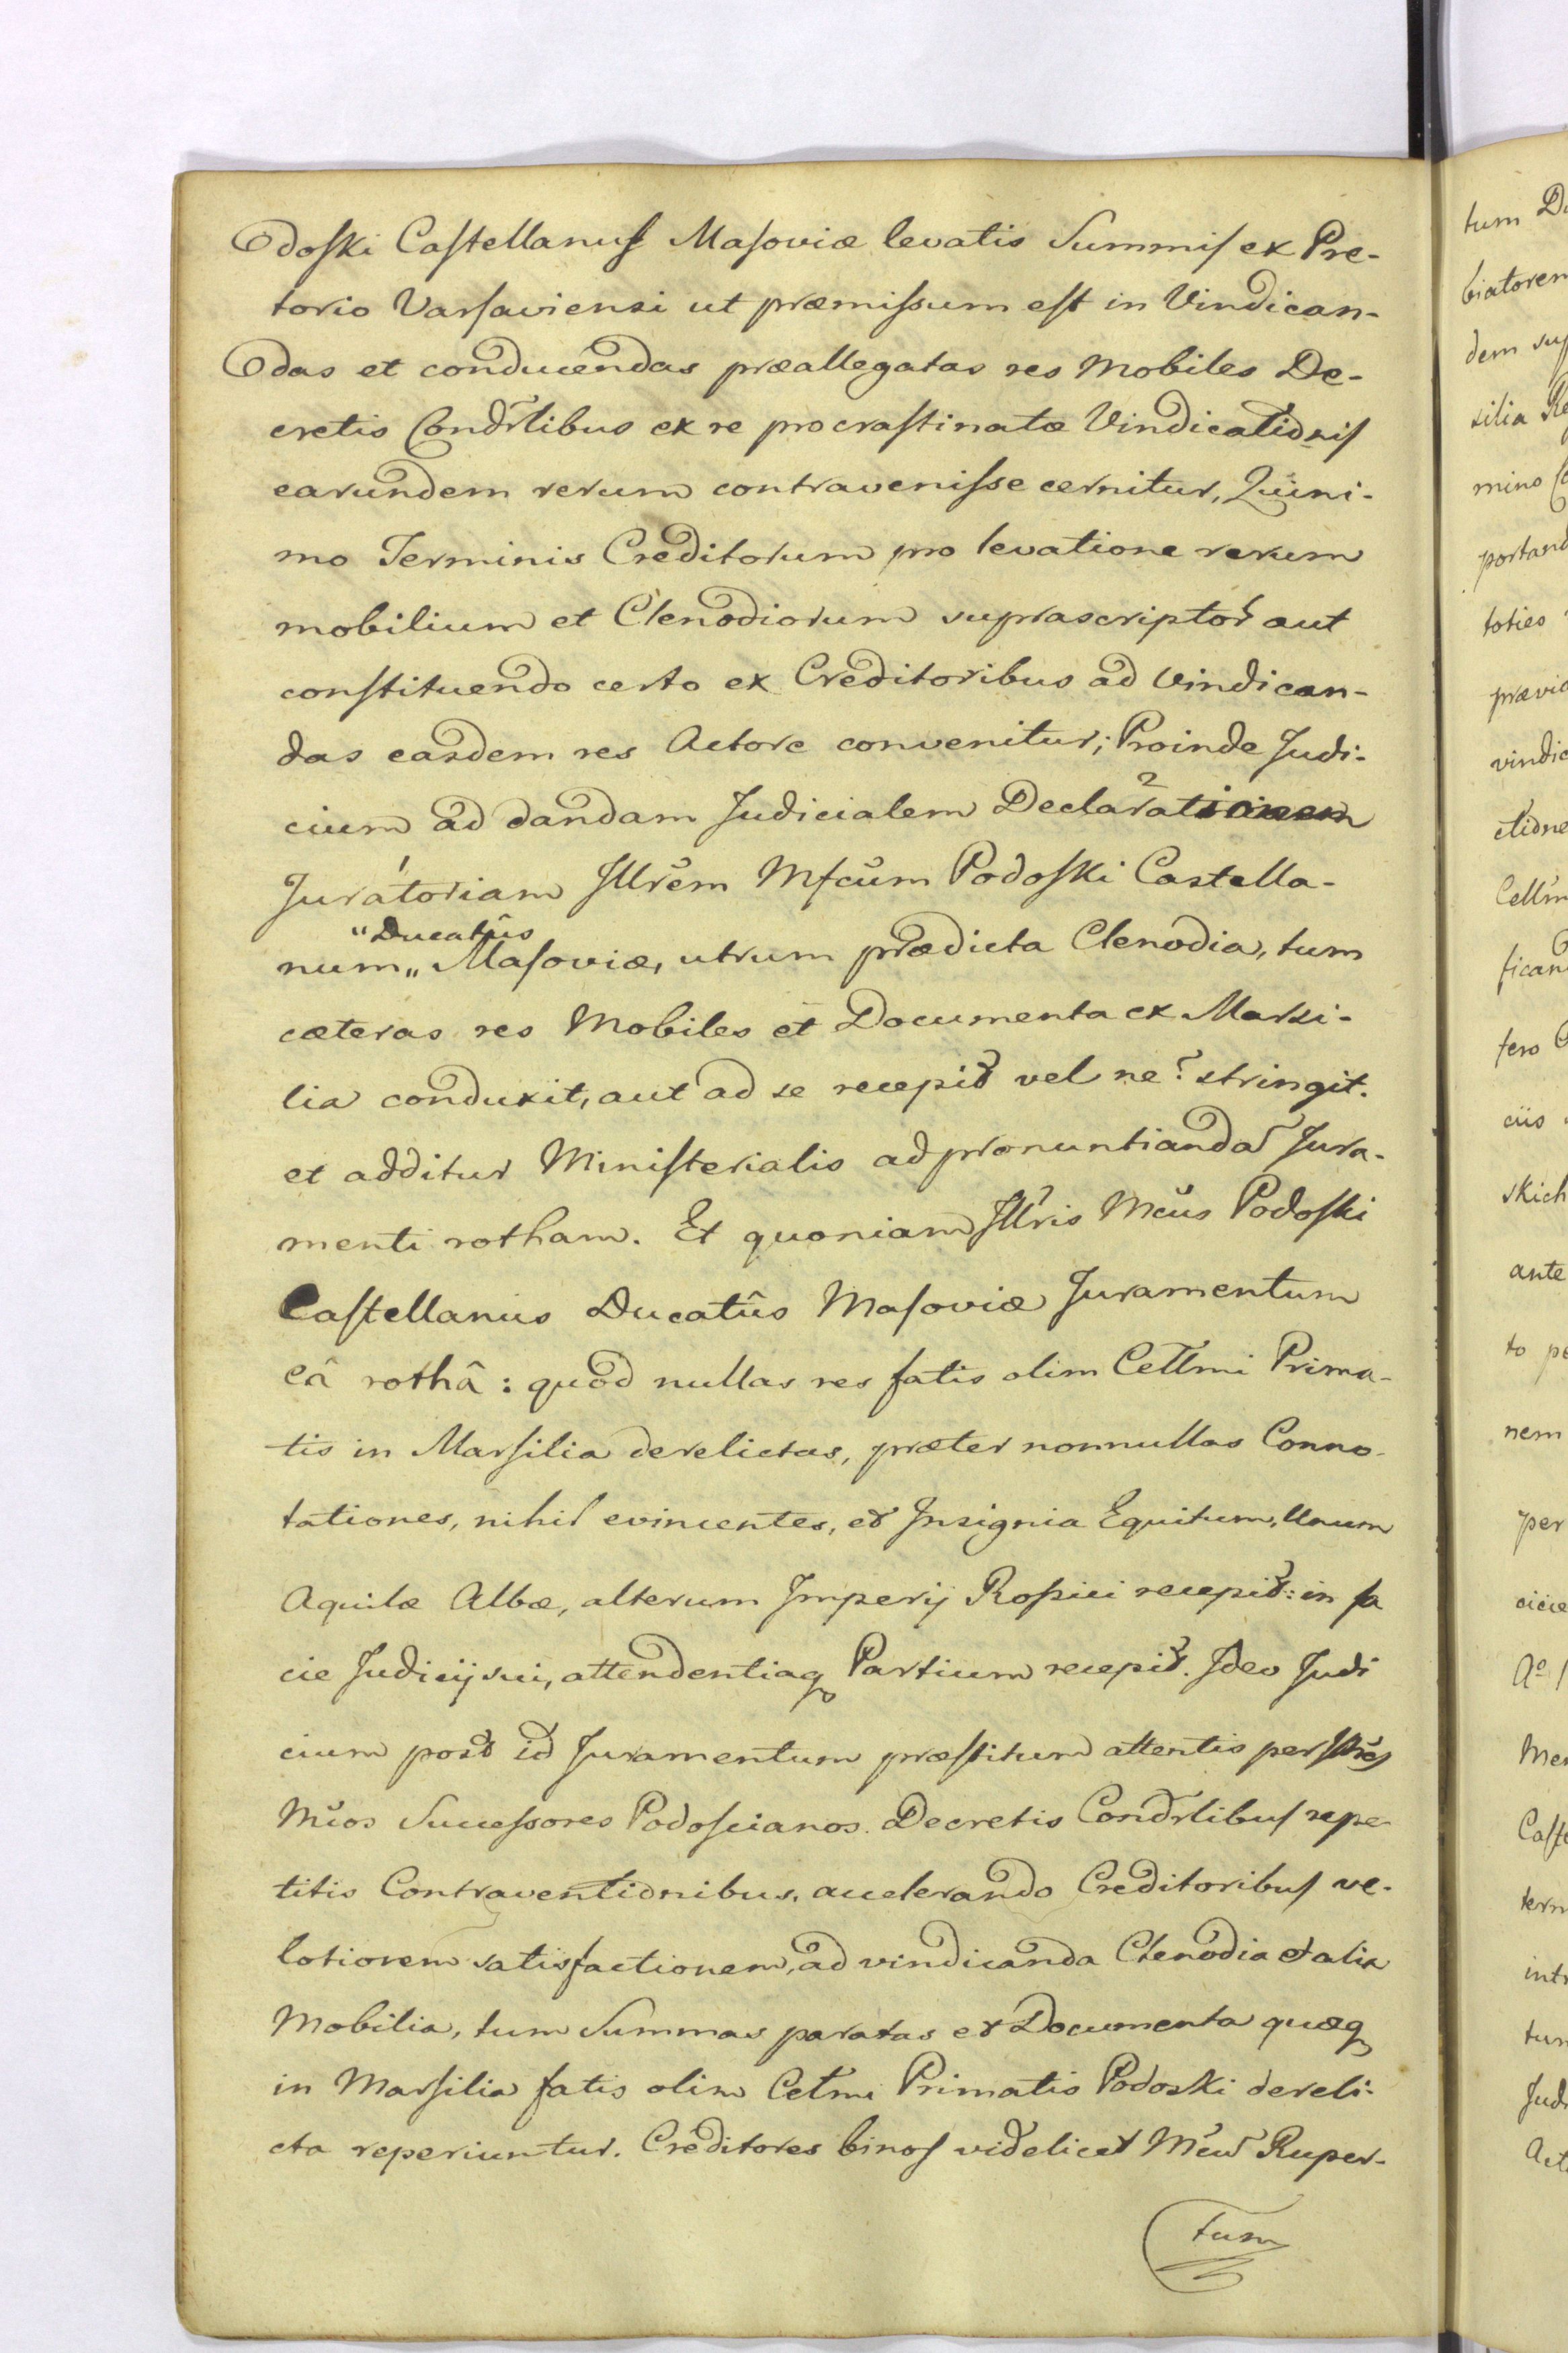 doſki Caſtellanuſ Maſoviæ levatis Summiſ ex Præ-
torio Varſaviensi ut præmiſsum eſt in Vindican-
das et conducendas præallegatas res Mobiles De-
cretis Condrlibus ex re procraſtinatæ Vindicationiſ
earundem rerum contraveniſse cernitur, Quini-
mo Terminis Creditorum pro levatione rerum
mobilium et Clenodiorum suprascriptor aut
conſtituendo certo ex Creditoribus ad Vindican-
das easdem res Actore convenitur; Proinde Judi-
cium ad dandam Judicialem Declarationem
Juratoriam Jllrem Mfcum Podoſki Castella-
"Ducatûs
num„ Maſoviæ, utrum prædicta Clenodia, tum
cæteras res Mobiles et Documenta ex Marsi-
lia conduxit, aut ad se recepit vel ne? stringit.
et additur Miniſterialis ad pronuntianda Jura-
menti rotham. Et quoniam Jllris Mcus Podoſki
Caſtellanus Ducatûs Maſoviæ Juramentum
eâ rothâ: quod nullas res fatis olim Cellmi Prima-
tis in Marſilia derelictas, præter nonnullas Conno-
tationes, nihil evincentes, et Jnsignia Equitum, Unum
Aquilæ Albæ, alterum Jmperij Roſsici recepit: in fa
cie Judicij sui, attendentiaq Partium recepit. Jdeo Judi
cium post id Juramentum præſtitum attentis per Jllres
Mcos Succeſsores Podoſcianos. Decretis Condrlibuſ repe-
titis Contraventionibus, accelerando Creditoribuſ ve-
lotiorem satisfactionem, ad vindicanda Clenodia et alia
Mobilia, tum Summas paratas et Documenta quæq
in Marſilia fatis olim Celmi Primatis Podoski dereli-
cta reperiuntur. Creditores binoſ videlicet Mcum Ruper-
tum